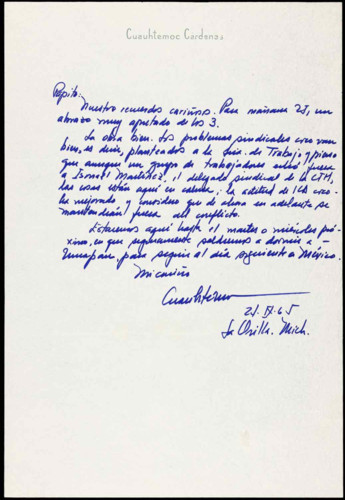 Cuauhtemoc Cardenas
Pepito:
Nuestros recuerdos cariñosos. Para mañana 23, un
abrazo muy apretado de los 3.
La obra bien. Los problemas sindicales creo van
bien, es decir, planteados a la Sría. de Trabajo y pienso
que aunque un grupo de trabajadores echó fuera
a Ismael Martínez, el delegado sindical de la CTM,
las cosas están aquí en calma; la actitud de ICA creo
ha mejorado y considero que de ahora en adelante se
mantendrán fuera del conflicto.
Estaremos aquí hasta el martes o miércoles pró-
ximo, en que seguramente saldremos a dormir a
Uruapan, para seguir al día siguiente a México.
Mi cariño
Cuauhtémoc
21. IX. 65
La Orilla. Mich.